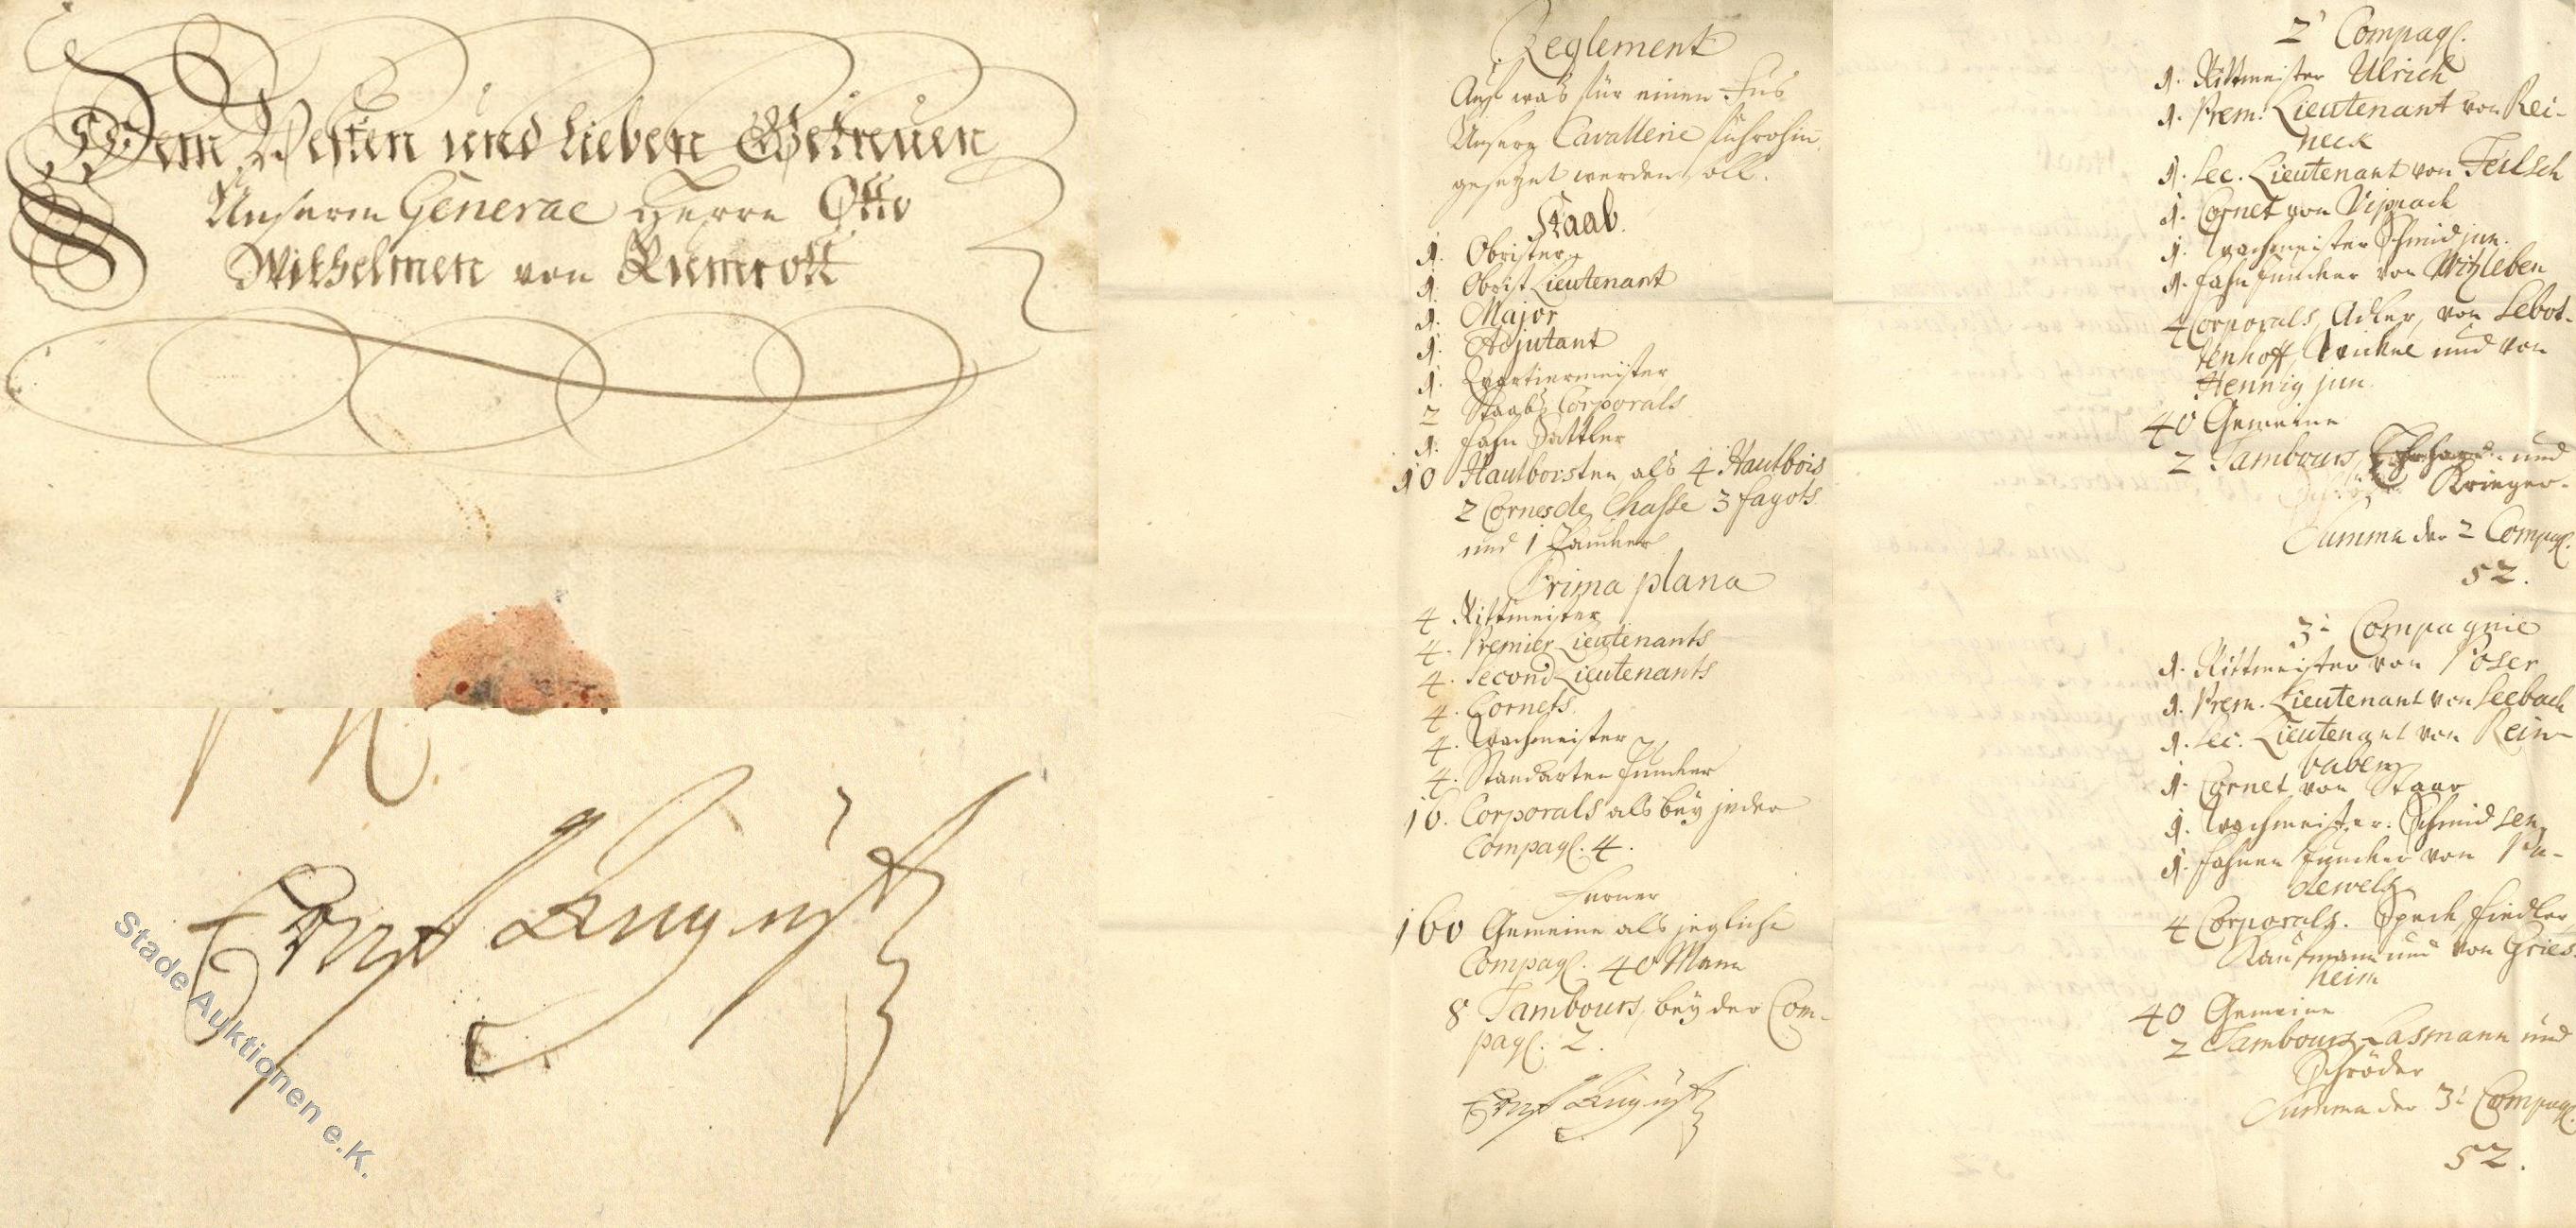 Dem Vesten und Lieben Getreuen
Unserm General Herrn Otto
Wilhelmen von Rumrott
Ernst August
Stade Auktionen e.K.
Reglement
Auf was für einen Fus
Unsere Cavallerie führohin
gesetzet werden soll.
Staab.
1. Obrister
1. Obrist Lieutenant
1. Major
1. Adjutant
1. Qvartiermeister
2 Staabs Corporals
1. Fahn Sattler
10 Hautboisten, als 4 Hautbois
2 Cornes de Chasse 3 Fagots
und 1 Paucker
Prima plana
4 Rittmeister
4. Premier Lieutenants
4. Second Lieutenants
4. Cornets
4. Wachmeister
4. Standarten Juncker
16. Corporals als bey jeder
Compagl. 4.
Ferner
160 Gemeine als jegliche
Compagl. 40 Mann
8 Tambours, bey der Com-
pagl. 2.
Ernst August
2 Compagl.
1. Rittmeister Ulrich
1. Prem. Lieutenant von Rei-
neck
1. Sec. Lieutenant von Teutsch
1. Cornet von Vippach
1. Wachmeister Schmid jun.
1. Fahn Juncker von Witzleben
4 Corporals, Adler, von Lebot-
tenhoff, und von
Hennig jun.
40 Gemeine
2 Tambours, und
Krieger.
Summa der 2 Compagl.
52.
3t Compagnie
1. Rittmeister von Poser
1. Prem. Lieutenant von Seebach
1. Sec. Lieutenant von Rein-
baben
1. Cornet von Staar
1. Wachmeister. Schmid sen.
1. Fahnen Juncker von Pa-
dewels
4 Corporals. Speck, Fiedler,
Kaufmann und von Gries-
heim
40 Gemeine
2 Tambours Lasmann und
Schröder
Summa der 3t Compagl.
52.